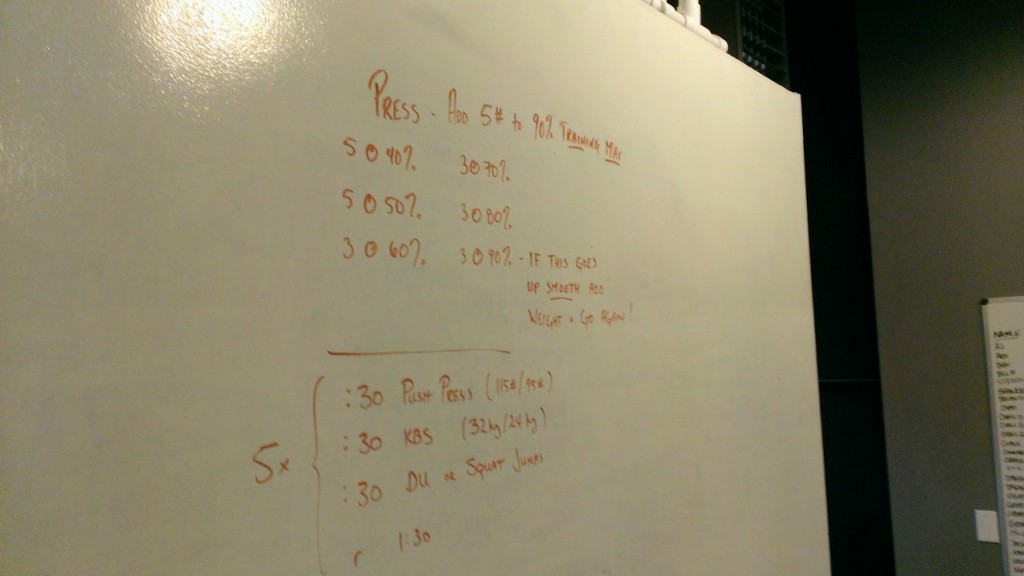 PRESS - ADD 5# to 90% TRAINING MAX
5 @ 40% 3@70%
5 @ 50% 3@80%
3 @ 60% 3@90% - IF THIS GOES
UP SMOOTH ADD
WEIGHT + GO AGAIN!
5x
:30 PUSH PRESS (115#/75#)
:30 KBS (32kg/24kg)
:30 DU or SQUAT JUMPS
r 1:30
NAME